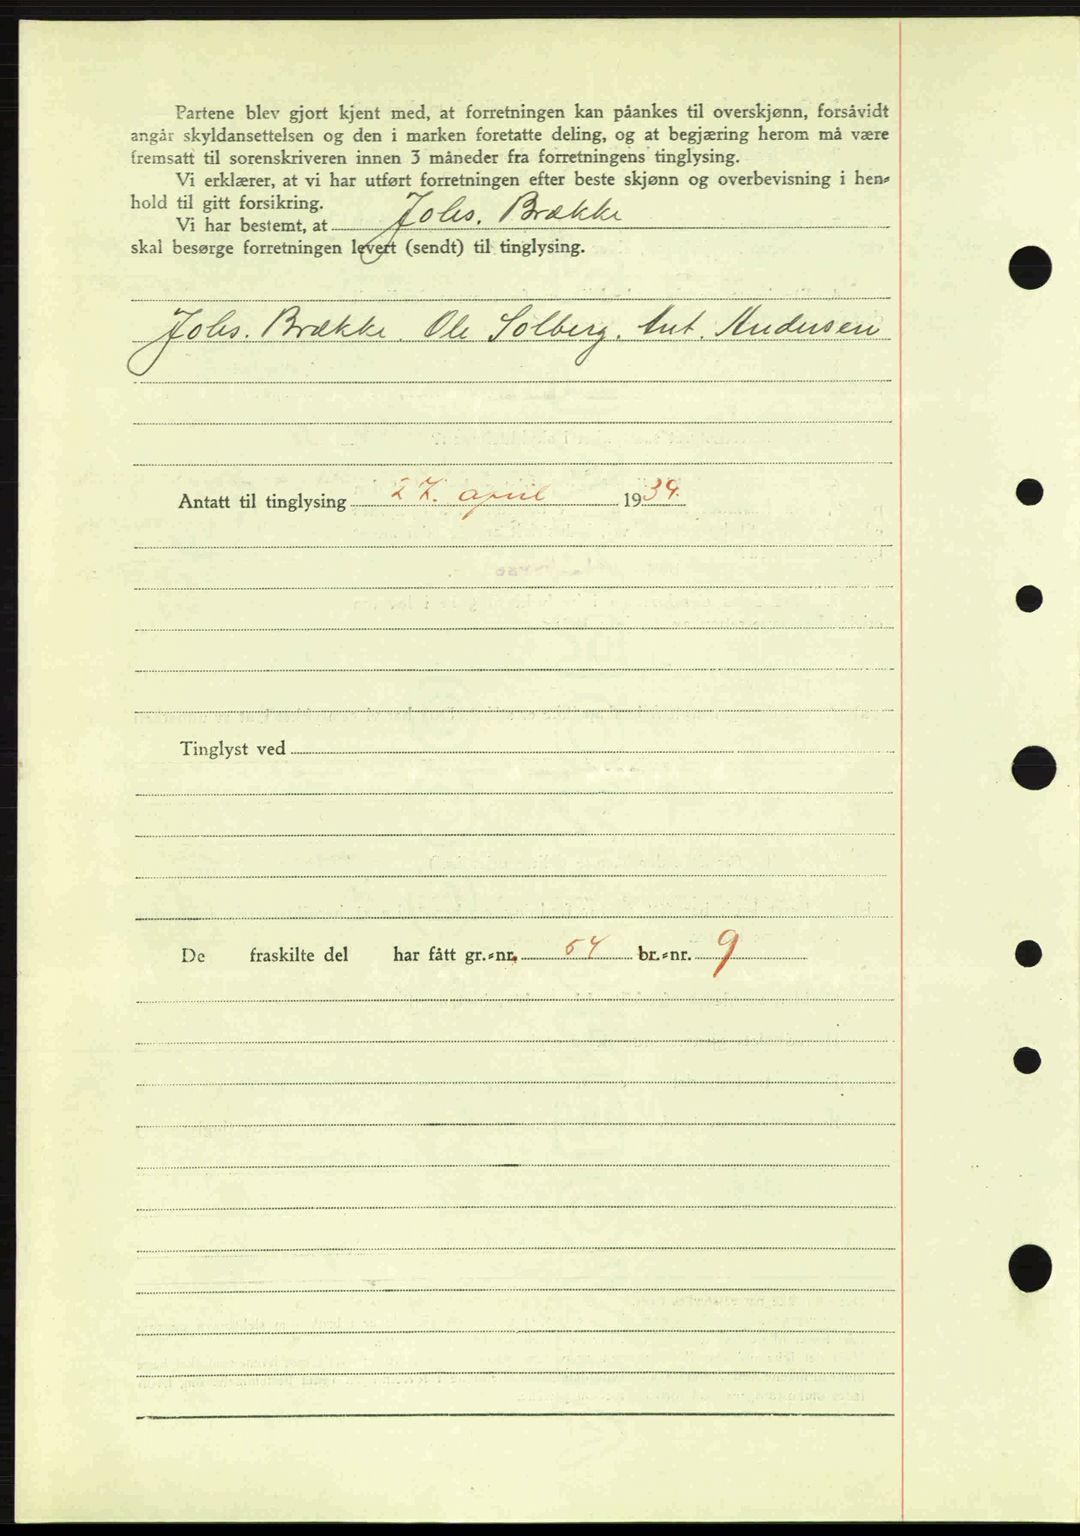 Partene blev gjort kjent med, at forretningen kan påankes til overskjønn, forsåvidt
angår skyldansettelsen og den i marken foretatte deling, og at begjæring herom må være
fremsatt til sorenskriveren innen 3 måneder fra forretningens tinglysing.
Vi erklærer, at vi har utført forretningen efter beste skjønn og overbevisning i hen-
hold til gitt forsikring.
Vi har bestemt, at Johs. Brække
skal besørge forretningen levert (sendt) til tinglysing.
Johs. Brække. Ole Solberg. Ant. Andersen
Antatt til tinglysing 27. april 1939.
Tinglyst ved
De fraskilte del har fått gr.-nr. 54 br.-nr. 9